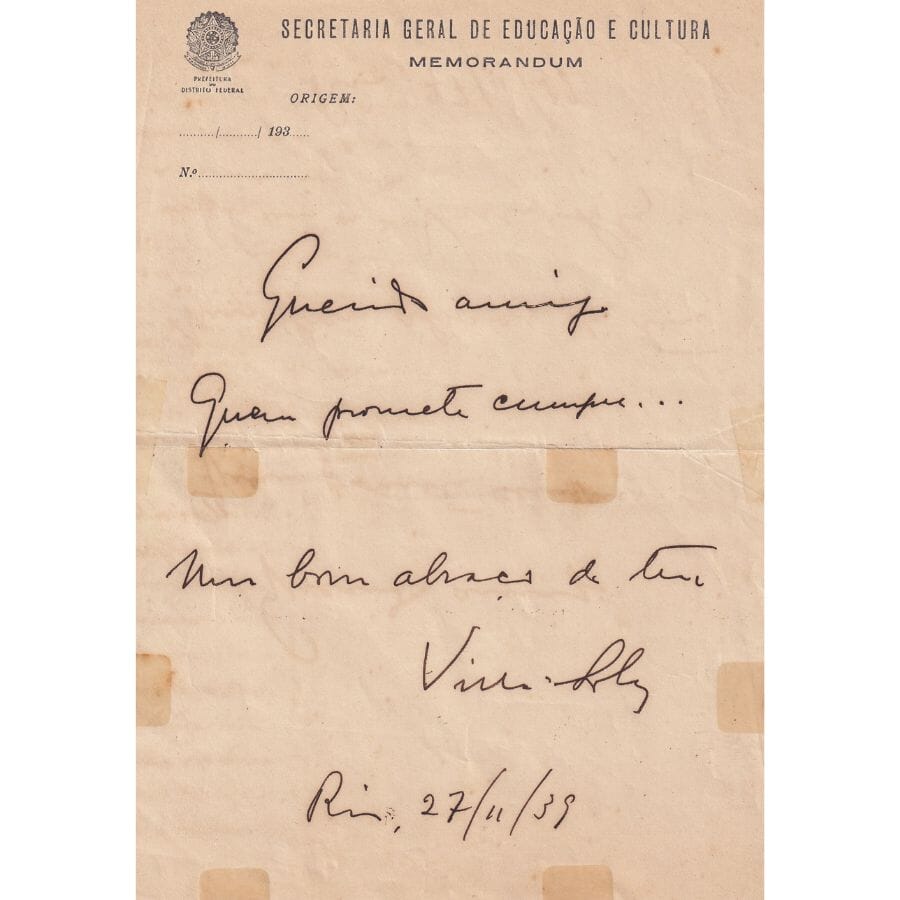 SECRETARIA GERAL DE EDUCAÇÃO E CULTURA
MEMORANDUM
PREFEITURA
DO
DISTRITO FEDERAL
ORIGEM:
........../.........../ 193......
N.º................................
Querido amigo
Quem promete cumpre...
Um bom abraço do teu
Villa-Lobos
Rio, 27/11/39